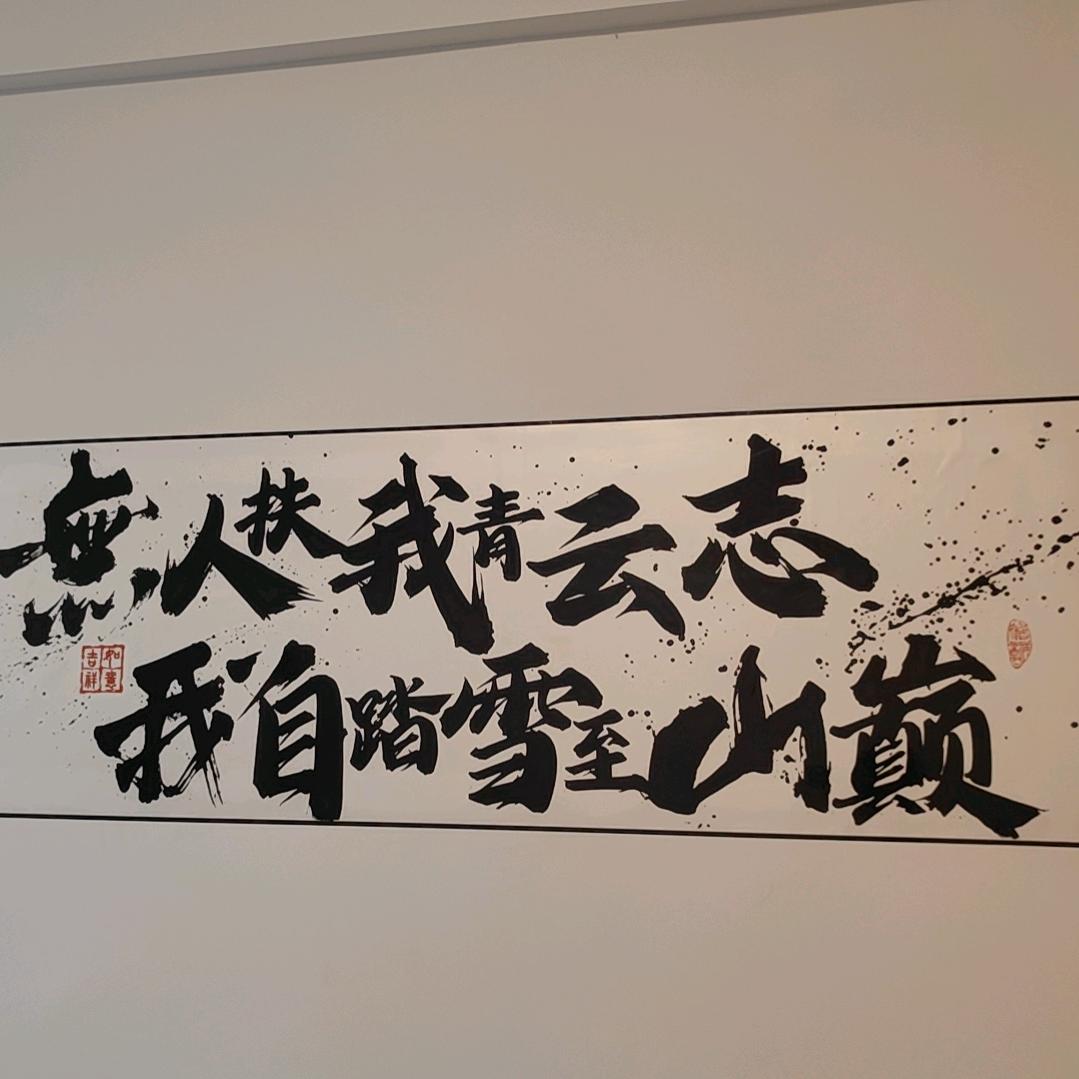 無人扶我青云志
我自踏雪至山巅
如意
吉祥